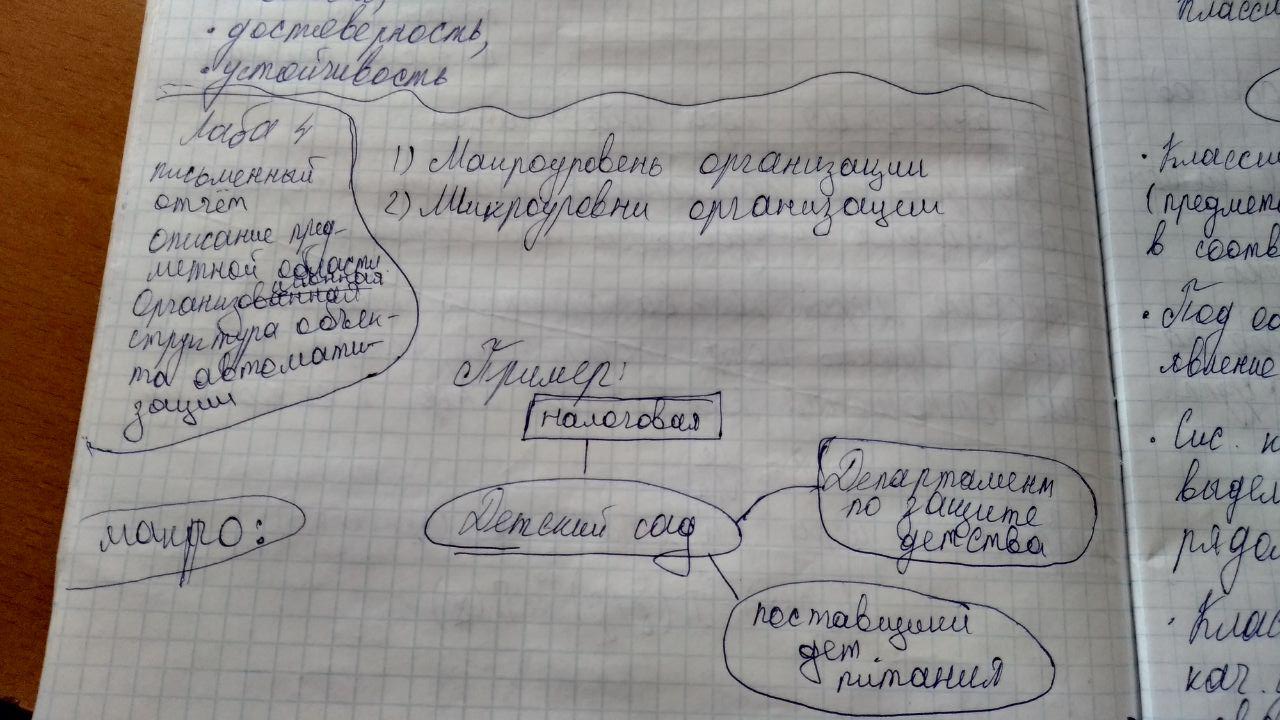 • достоверность,
• устойчивость
Лаба 4
письменный
отчёт
описание пред-
метной области
Организационная
структура объек-
та автомати-
зации
1) Макроуровень организации
2) Микроуровни организации
Пример:
налоговая
макро:
Детский сад
Департамент
по защите
детства
поставщики
дет
питания
• Класси
(предмет
в соотв
• Под со
явление
• Сис. к
выдел
рядо
• Клас
кач.